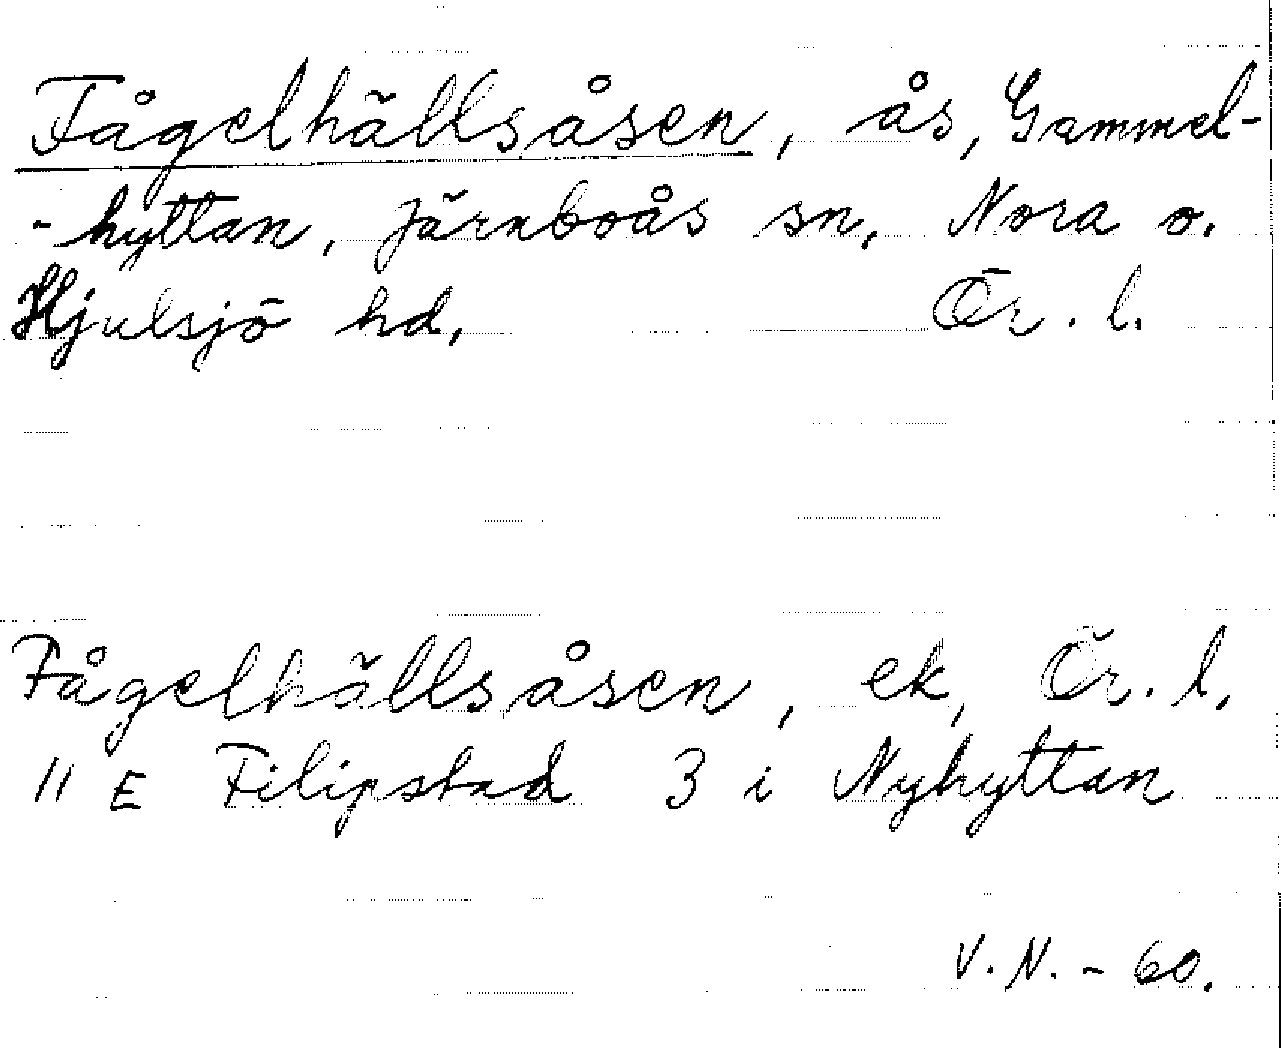 Fågelhällsåsen, ås, Gammel-
-hyttan, Järnboås sn, Nora o.
Hjulsjö hd, Ör. l.
Fågelhällsåsen, ek, Ör. l.
11 E Filipstad 3 i Nyhyttan
V. N. - 60.